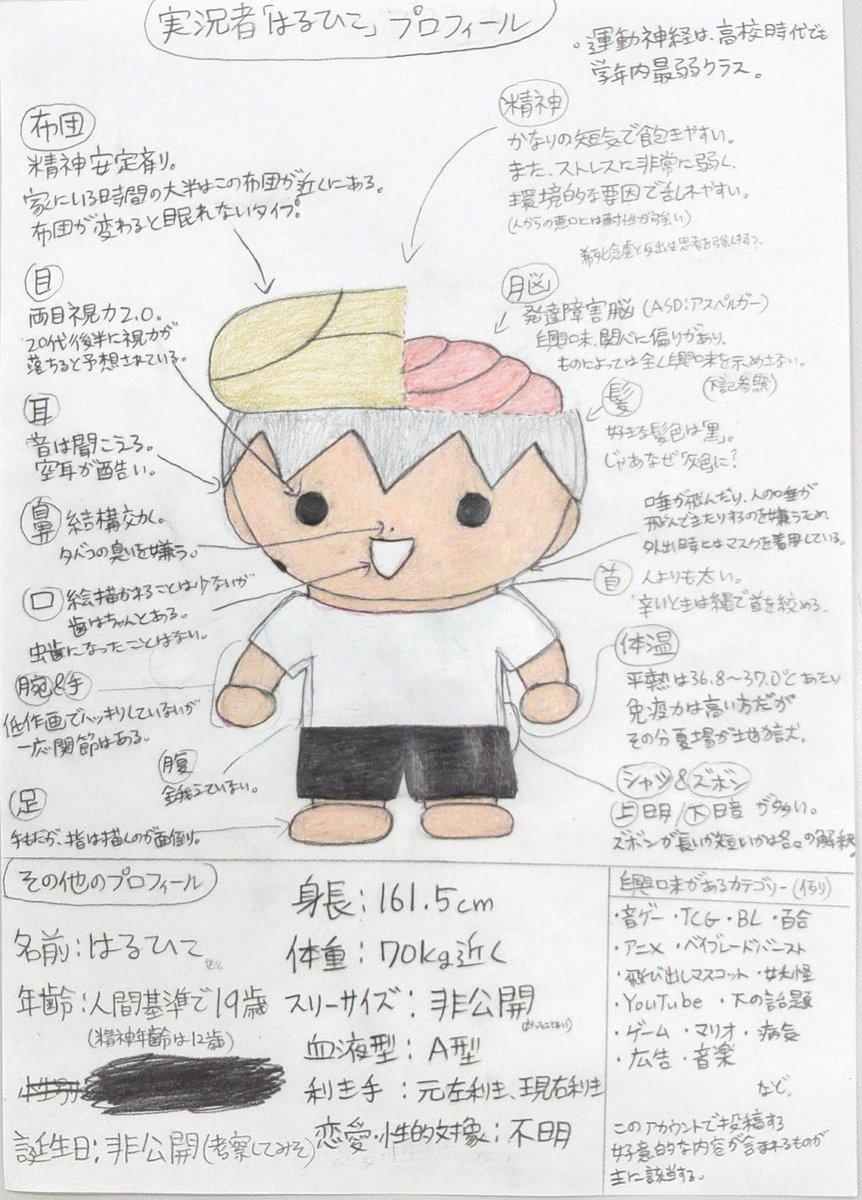 実況者「はるひこ」プロフィール
。運動神経は、高校時代でも
学年内最弱クラス。
布団
精神安定剤。
家にいる時間の大半はこの布団が近くにある。
布団が変わると眠れないタイプ。
精神
かなりの短気で飽きやすい。
また、ストレスに非常に弱く、
環境的な要因で乱れやすい。
(人からの悪口とは耐性が強い)
目
両目視力2.0。
20代後半に視力が
落ちると予想されている。
脳
発達障害脳(ASD:アスペルガー)
興味、関心に偏りがあり、
ものによっては全く興味を示めさない。
(下記参照)
耳
音は聞こえる。
空耳が酷い。
髪
好きな髪色は「黒」。
じゃあなぜ「灰色」に?
鼻 結構効く。
タバコの臭いを嫌う。
唾が飛んだり、人の唾が
飛んできたりするのを嫌うため
外出時にはマスクを着用している。
口 絵描かれることは少ないが
歯はちゃんとある。
虫歯になったことはない。
首 人よりも太い。
辛いときは縄で首を絞める。
腕&手
低作画でハッキリしていないが
一応関節はある。
体温
平熱は36.8〜37.0℃あたり
免疫力は高い方だが
その分夏場が地獄。
腹
鍛えていない。
シャツ&ズボン
上明/下暗が多い。
ズボンが長いか短いかは各々の解釈。
足
手もだが、指は描くのが面倒。
その他のプロフィール
名前:はるひこ
年齢:人間基準で19歳
(精神年齢は12歳)
誕生日:非公開(考察してみそ)
身長:161.5cm
体重:70kg近く
スリーサイズ:非公開
血液型:A型
利き手:元左利き、現右利き
恋愛・性的対象:不明
興味があるカテゴリー(例)
・音ゲー・TCG・BL・百合
・アニメ・ベイブレードバースト
・飛び出しマスコット・妖怪
・YouTube・下の話題
・ゲーム・マリオ・病気
・広告・音楽
など。
このアカウントで投稿する
好意的な内容が含まれるものが
主に該当する。